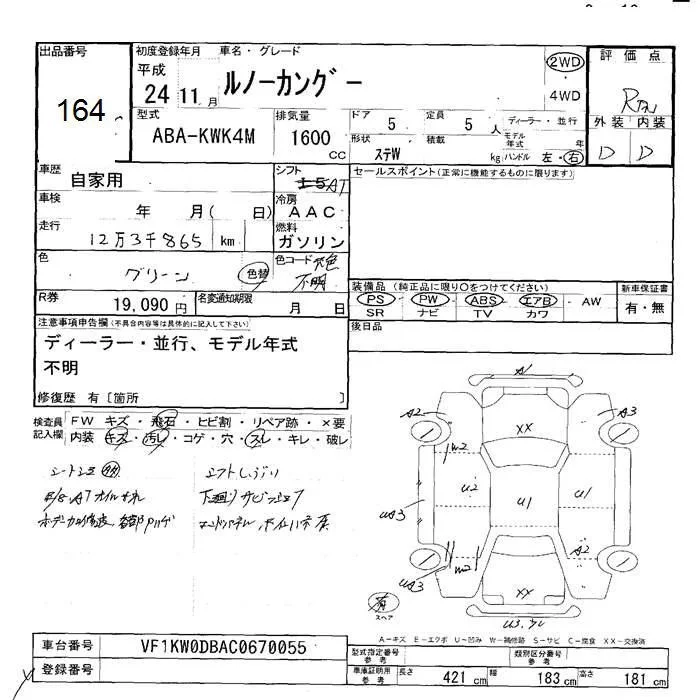 出品番号
164
初度登録年月
平成
24 11 月
車名・グレード
ルノーカングー
2WD
4WD
評価点
外装 内装
D D
型式
ABA-KWK4M
排気量
1600
CC
ドア
5
定員
5 人
形状
ステW
積載
kg
ディーラー・並行
モデル年式
年
ハンドル 左・右
車歴
自家用
シフト
AT
セールスポイント(正常に機能するものに限ります)
車検
年 月( 日)
冷房
AAC
走行
12万3千865 km
燃料
ガソリン
色
グリーン
色替
色コード
不明
装備品 (純正品に限り○をつけてください)
PS・PW・ABS・エアB・AW
SR ナビ TV カワ
新車保証書
有・無
R券
19,090 円
名変通知期限
月 日
後日品
注意事項申告欄(不具合内容等は具体的に記入して下さい)
ディーラー・並行、モデル年式
不明
修復歴 有[箇所 ]
検査員記入欄
FW キズ・飛石・ヒビ割・リペア跡・×要
内装 キズ・汚れ・コゲ・穴・スレ・キレ・破レ
A
A2
A3
XX
W2
U2
U1
U1
UA3
W2
A2
UA3
XX
有
スペア
A-キズ E-エクボ U-凹み W-補修跡 S-サビ C-腐食 XX-交換済
車台番号
VF1KW0DBAC0670055
登録番号
型式指定番号
参考
類別区分番号
参考
車庫証明用
参考
長さ
421 cm
幅
183 cm
高さ
181 cm